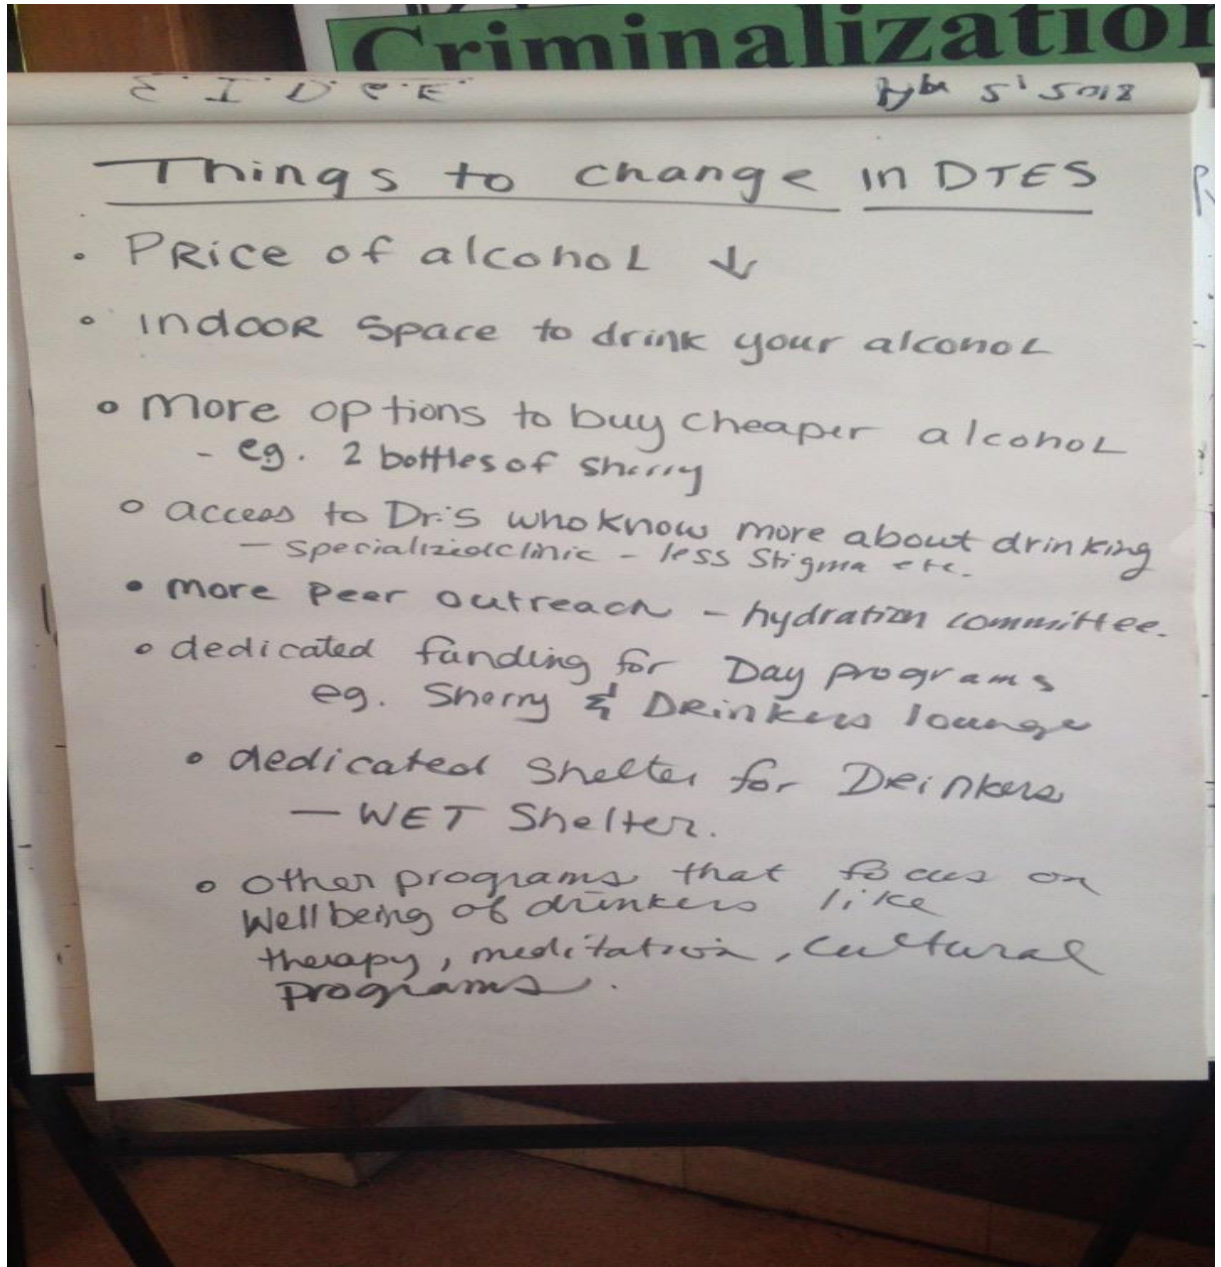 Criminalization
Things to change in DTES
• Price of alcohol ↓
• indoor space to drink your alcohol
• more options to buy cheaper alcohol
- eg. 2 bottles of sherry
• access to Dr.'s who know more about drinking
- specialized clinic - less stigma etc.
• more peer outreach - hydration committee.
• dedicated funding for Day programs
eg. Sherry & Drinkers lounge
• dedicated Shelter for Drinkers
- WET Shelter.
• other programs that focus on
Wellbeing of drinkers like
therapy, meditation, cultural
programs.